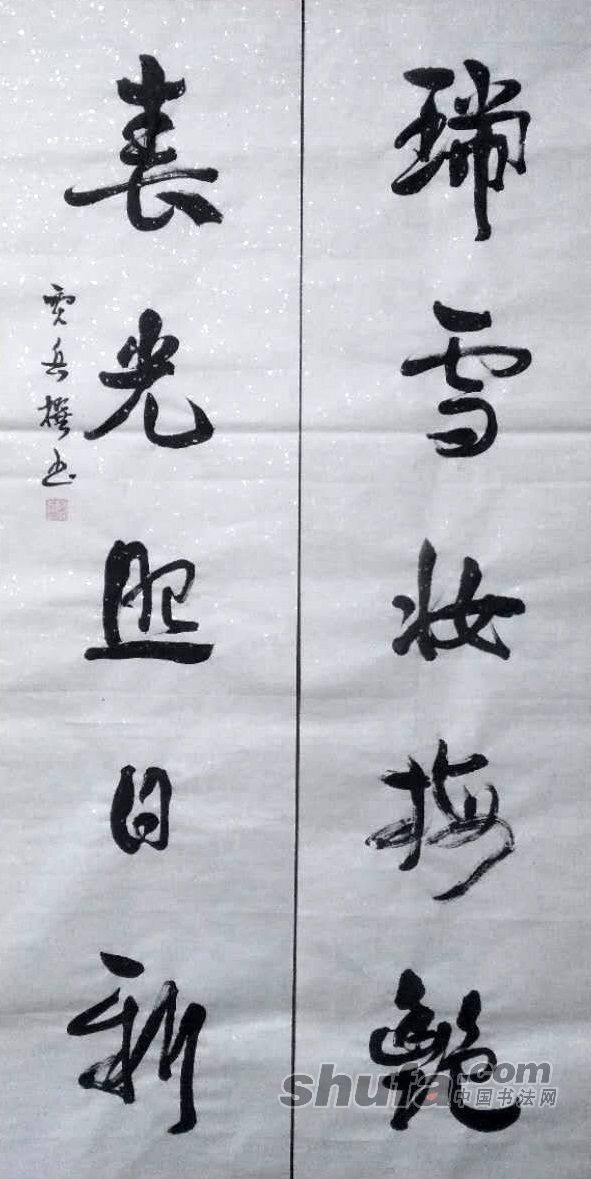 瑞雪妆梅艳
春光照日新
贾兵撰书
shufa.com
中国书法网